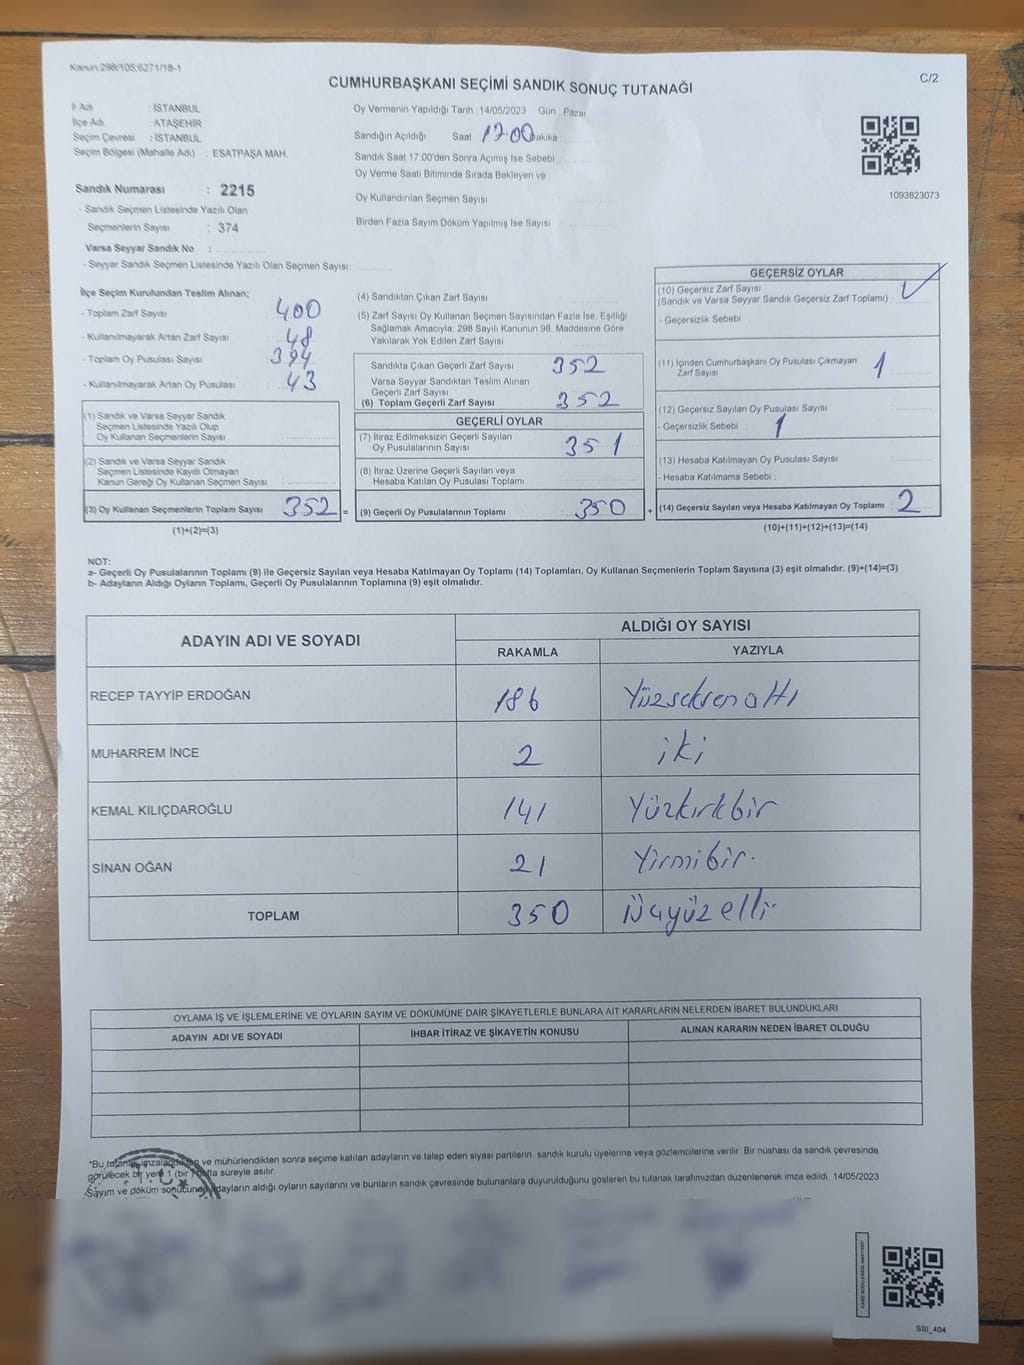 Kanun:298/105,6271/18-1
C/2
CUMHURBAŞKANI SEÇİMİ SANDIK SONUÇ TUTANAĞI
İl Adı : İSTANBUL
İlçe Adı : ATAŞEHİR
Seçim Çevresi : İSTANBUL
Seçim Bölgesi (Mahalle Adı) : ESATPAŞA MAH.
Sandık Numarası : 2215
- Sandık Seçmen Listesinde Yazılı Olan
Seçmenlerin Sayısı : 374
Varsa Seyyar Sandık No :
- Seyyar Sandık Seçmen Listesinde Yazılı Olan Seçmen Sayısı:
Oy Vermenin Yapıldığı Tarih : 14/05/2023 Gün : Pazar
Sandığın Açıldığı Saat 17.00 Dakika :
Sandık Saat 17:00'den Sonra Açımış İse Sebebi :
Oy Verme Saati Bitiminde Sırada Bekleyen ve
Oy Kullandırılan Seçmen Sayısı
Birden Fazla Sayım Döküm Yapılmış İse Sayısı
1093823073
İlçe Seçim Kurulundan Teslim Alınan;
- Toplam Zarf Sayısı : 400
- Kullanılmayarak Artan Zarf Sayısı : 48
- Toplam Oy Pusulası Sayısı : 394
- Kullanılmayarak Artan Oy Pusulası : 43
(1) Sandık ve Varsa Seyyar Sandık
Seçmen Listesinde Yazılı Olup
Oy Kullanan Seçmenlerin Sayısı :
(2) Sandık ve Varsa Seyyar Sandık
Seçmen Listesinde Kayıtlı Olmayan
Kanun Gereği Oy Kullanan Seçmen Sayısı :
(3) Oy Kullanan Seçmenlerin Toplam Sayısı : 352 =
(1)+(2)=(3)
(4) Sandıktan Çıkan Zarf Sayısı
(5) Zarf Sayısı Oy Kullanan Seçmen Sayısından Fazla İse, Eşitliği
Sağlamak Amacıyla; 298 Sayılı Kanunun 98. Maddesine Göre
Yakılarak Yok Edilen Zarf Sayısı
Sandıkta Çıkan Geçerli Zarf Sayısı 352
Varsa Seyyar Sandıktan Teslim Alınan
Geçerli Zarf Sayısı
(6) Toplam Geçerli Zarf Sayısı 352
GEÇERLİ OYLAR
(7) İtiraz Edilmeksizin Geçerli Sayılan
Oy Pusulalarının Sayısı 351
(8) İtiraz Üzerine Geçerli Sayılan veya
Hesaba Katılan Oy Pusulası Toplamı
(9) Geçerli Oy Pusulalarının Toplamı : 350 +
GEÇERSİZ OYLAR
(10) Geçersiz Zarf Sayısı
(Sandık ve Varsa Seyyar Sandık Geçersiz Zarf Toplamı) :
- Geçersizlik Sebebi :
(11) İçinden Cumhurbaşkanı Oy Pusulası Çıkmayan
Zarf Sayısı : 1
(12) Geçersiz Sayılan Oy Pusulası Sayısı
- Geçersizlik Sebebi : 1
(13) Hesaba Katılmayan Oy Pusulası Sayısı
- Hesaba Katılmama Sebebi :
(14) Geçersiz Sayılan veya Hesaba Katılmayan Oy Toplamı : 2
(10)+(11)+(12)+(13)=(14)
NOT:
a- Geçerli Oy Pusulalarının Toplamı (9) ile Geçersiz Sayılan veya Hesaba Katılmayan Oy Toplamı (14) Toplamları, Oy Kullanan Seçmenlerin Toplam Sayısına (3) eşit olmalıdır. (9)+(14)=(3)
b- Adayların Aldığı Oyların Toplamı, Geçerli Oy Pusulalarının Toplamına (9) eşit olmalıdır.
ADAYIN ADI VE SOYADI ALDIĞI OY SAYISI
RAKAMLA YAZIYLA
RECEP TAYYİP ERDOĞAN 186 Yüzseksenaltı
MUHARREM İNCE 2 iki
KEMAL KILIÇDAROĞLU 141 Yüzkırkbir
SİNAN OĞAN 21 Yirmibir.
TOPLAM 350 Üçyüzelli
OYLAMA İŞ VE İŞLEMLERİNE VE OYLARIN SAYIM VE DÖKÜMÜNE DAİR ŞİKAYETLERLE BUNLARA AİT KARARLARIN NELERDEN İBARET BULUNDUKLARI
ADAYIN ADI VE SOYADI İHBAR İTİRAZ VE ŞİKAYETİN KONUSU ALINAN KARARIN NEDEN İBARET OLDUĞU
*Bu tutanak imzalandıktan ve mühürlendikten sonra seçime katılan adayların ve talep eden siyasi partilerin sandık kurulu üyelerine veya gözlemcilerine verilir. Bir nüshası da sandık çevresinde
görülecek bir yere 1 (bir) hafta süreyle asılır.
Sayım ve döküm sonucunda adayların aldığı oyların sayılarını ve bunların sandık çevresinde bulunanlara duyurulduğunu gösteren bu tutanak tarafımızdan düzenlenerek imza edildi. 14/05/2023
SSI_404